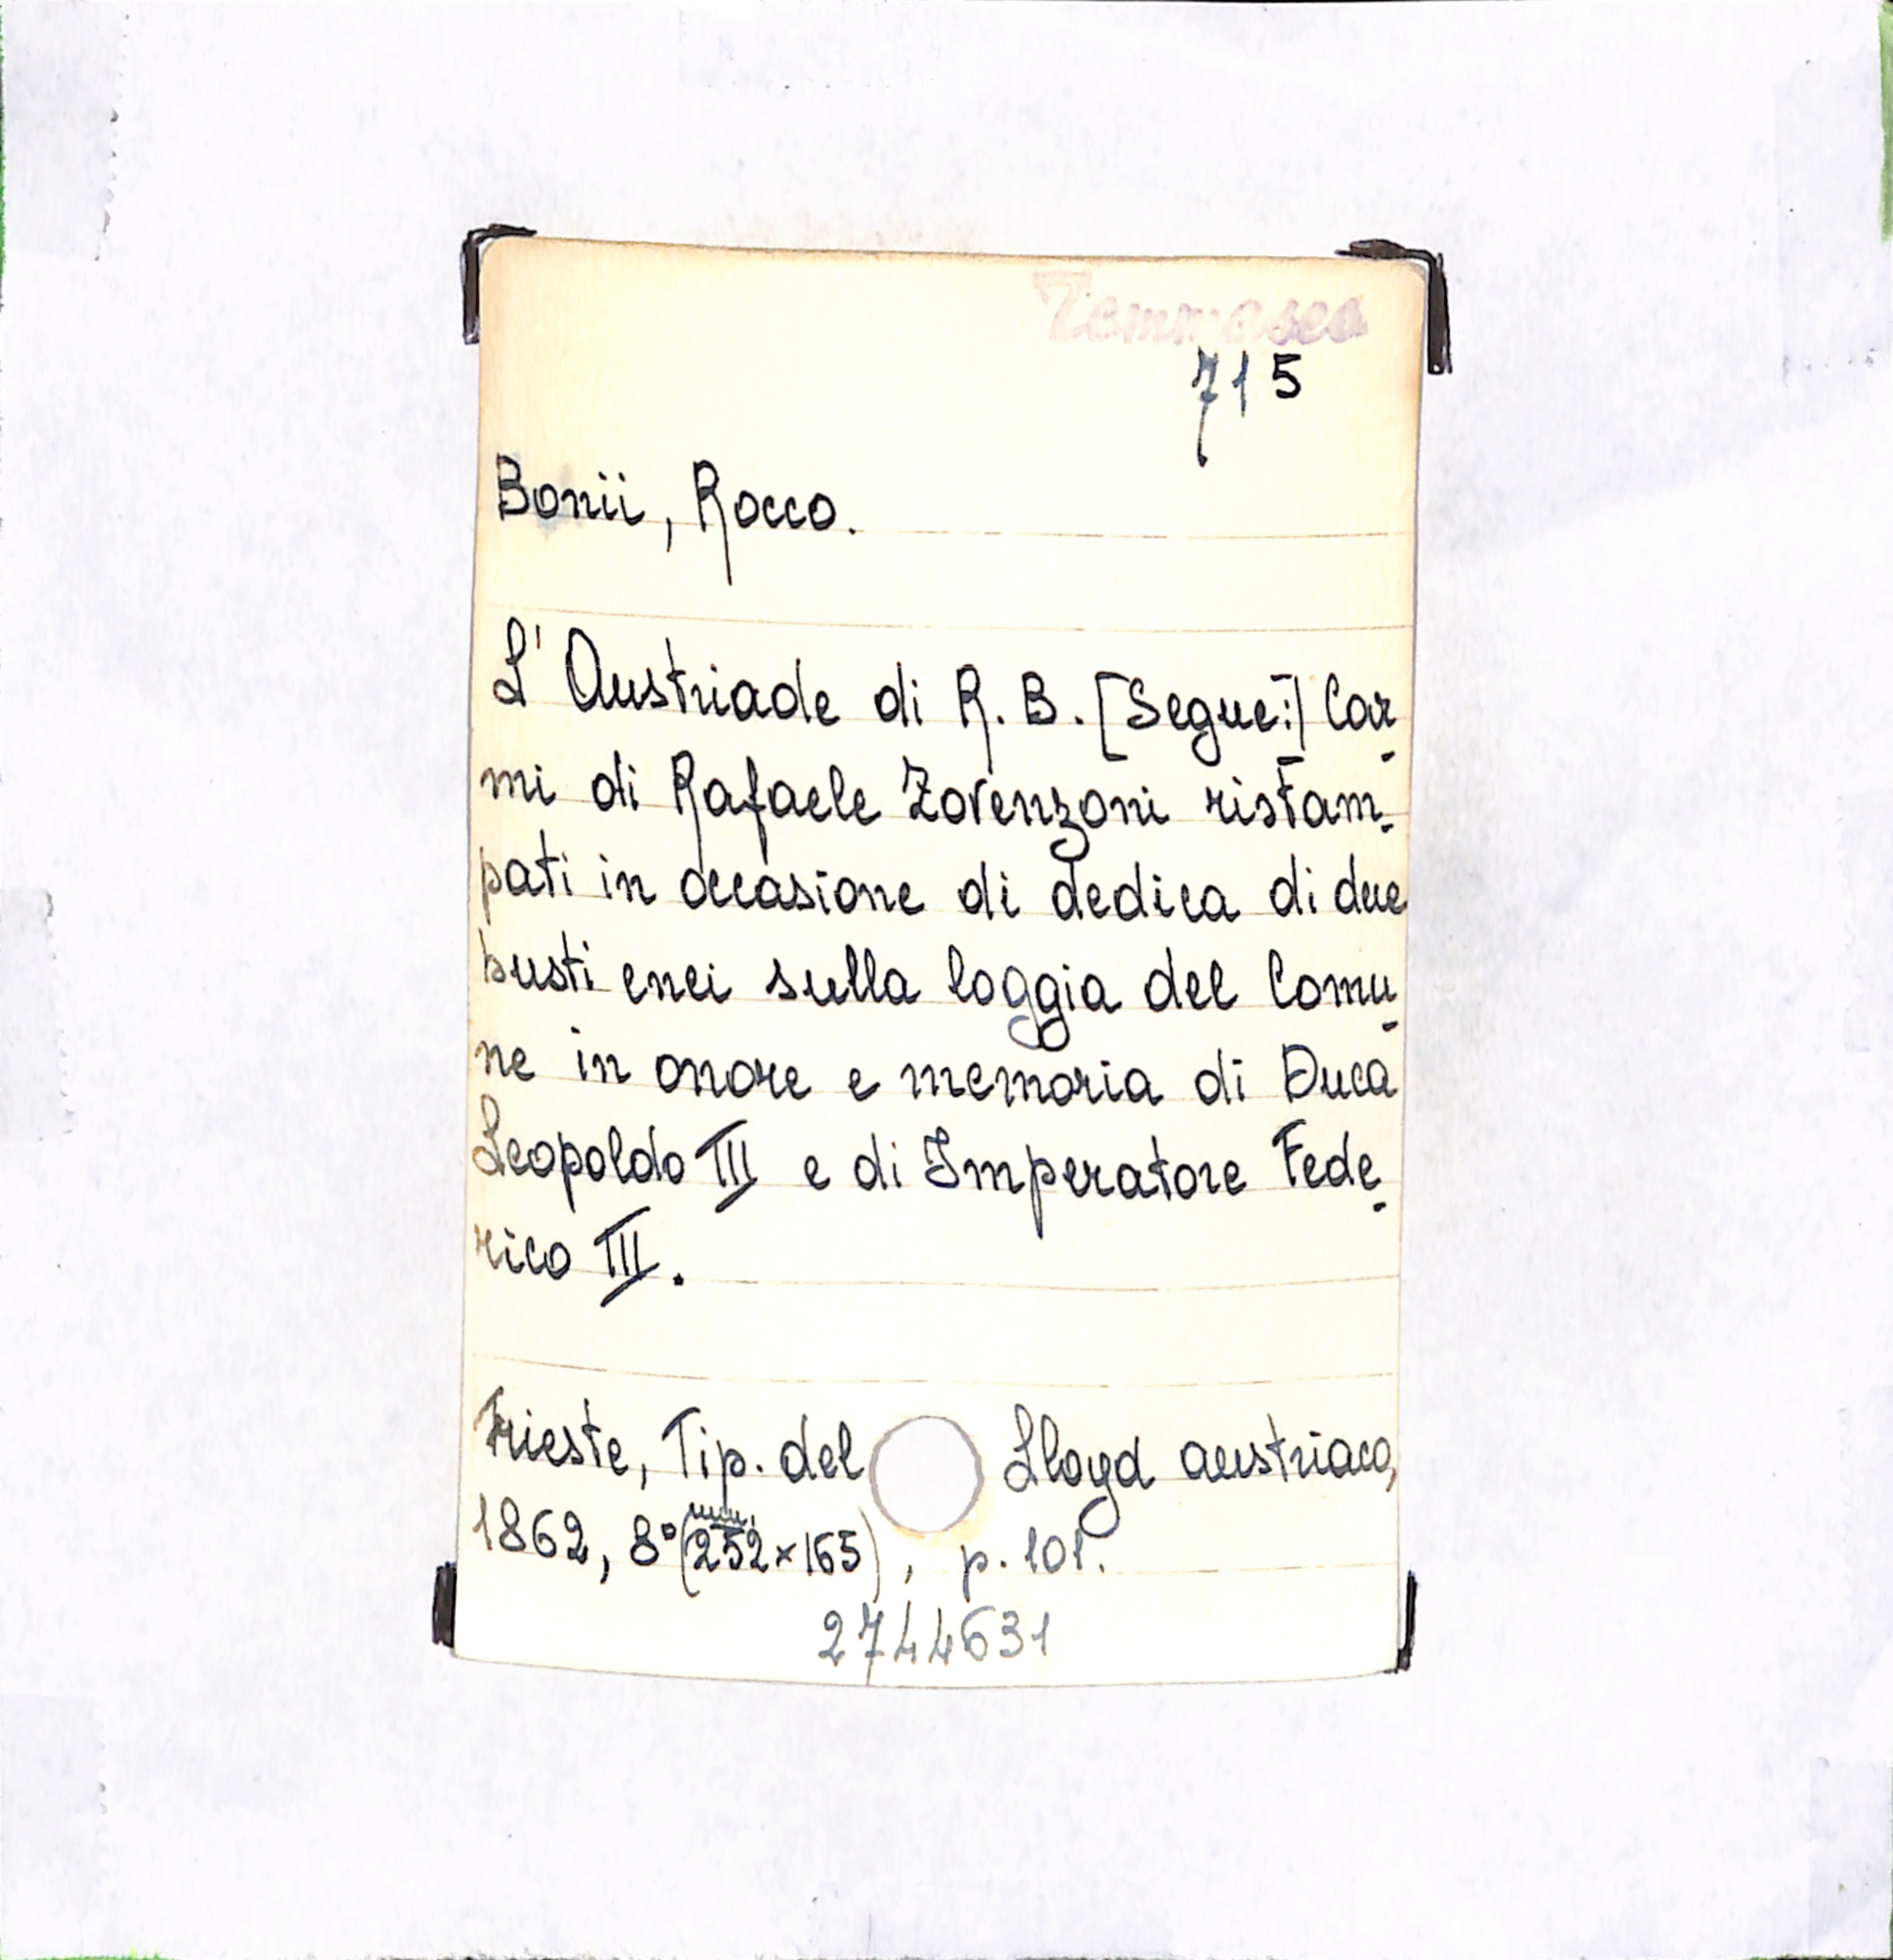 Tommaseo
715
Bonii, Rocco.
L' Austriade di R. B. [Segue:] Car-
mi di Rafaele Zovenzoni ristam-
pati in occasione di dedica di due
busti enei sulla loggia del Comu-
ne in onore e memoria di Duca
Leopoldo III e di Imperatore Fede-
rico III.
Trieste, Tip. del Lloyd austriaco,
1862, 8° (252 × 165), p. 101.
2744631